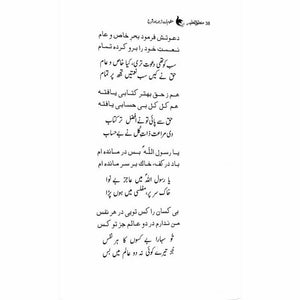 38
دعوتش فرمود بحر خاص و عام
نعمت خود را برو کرده تمام
سب کو تھی دعوت تری، کیا خاص و عام
حق نے کیں سب نعمتیں تجھ پر تمام
هم ز حق بهتر کتابی یافته
هم کل کل بی حسابی یافته
حق سے پائی تو نے افضل تر کتاب
دی مراعت ذات کل نے بے حساب
یا رسول اللهؐ بس در مانده ام
باد در کف، خاک بر سر مانده ام
یا رسول اللہؐ میں عاجز بے نوا
خاک سر پر، مفلسی میں ہوں پڑا
بی کسان را کس توبی در هر نفس
من ندارم در دو عالم جز تو کس
تو سہارا بے کسوں کا ہر نفس
جز تیرے کوئی نہ دو عالم میں بس